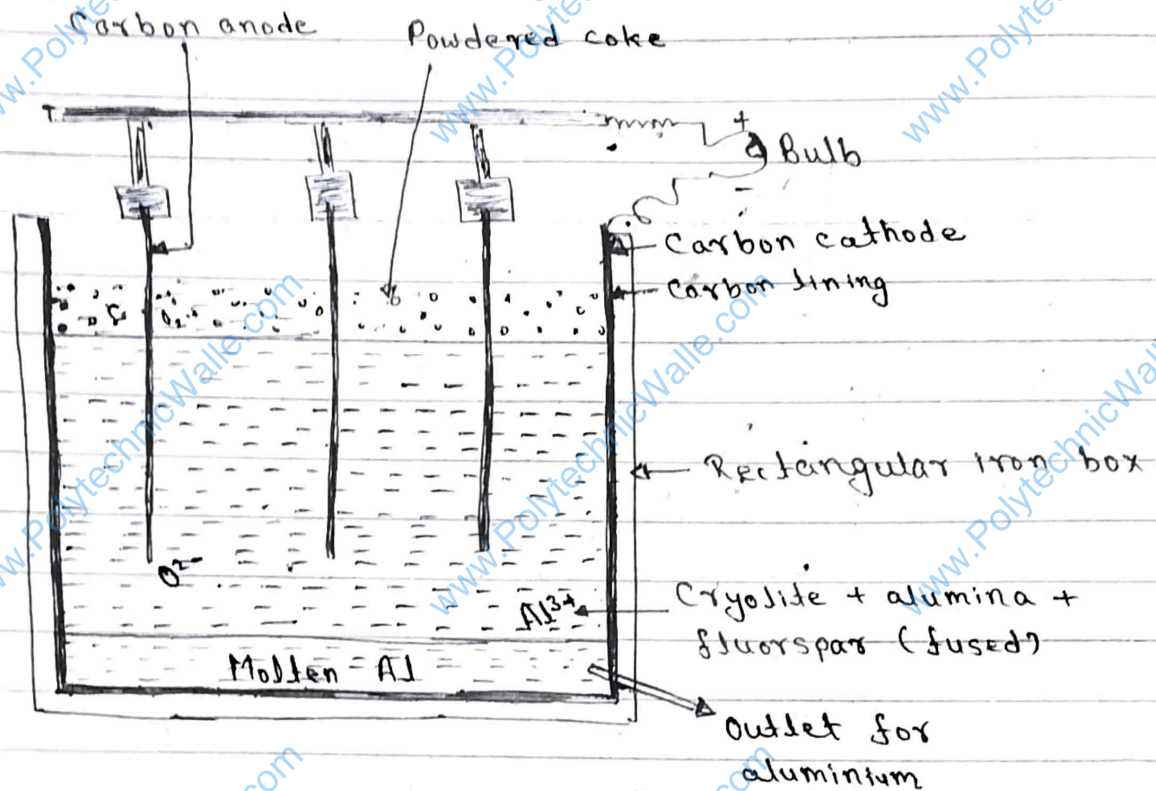 Carbon anode
Powdered coke
+
Bulb
-
Carbon cathode
Carbon lining
Rectangular iron box
O²⁻
Al³⁺
Cryolite + alumina +
fluorspar (fused)
Molten Al
Outlet for
aluminium
www.PolytechnicWalle.com